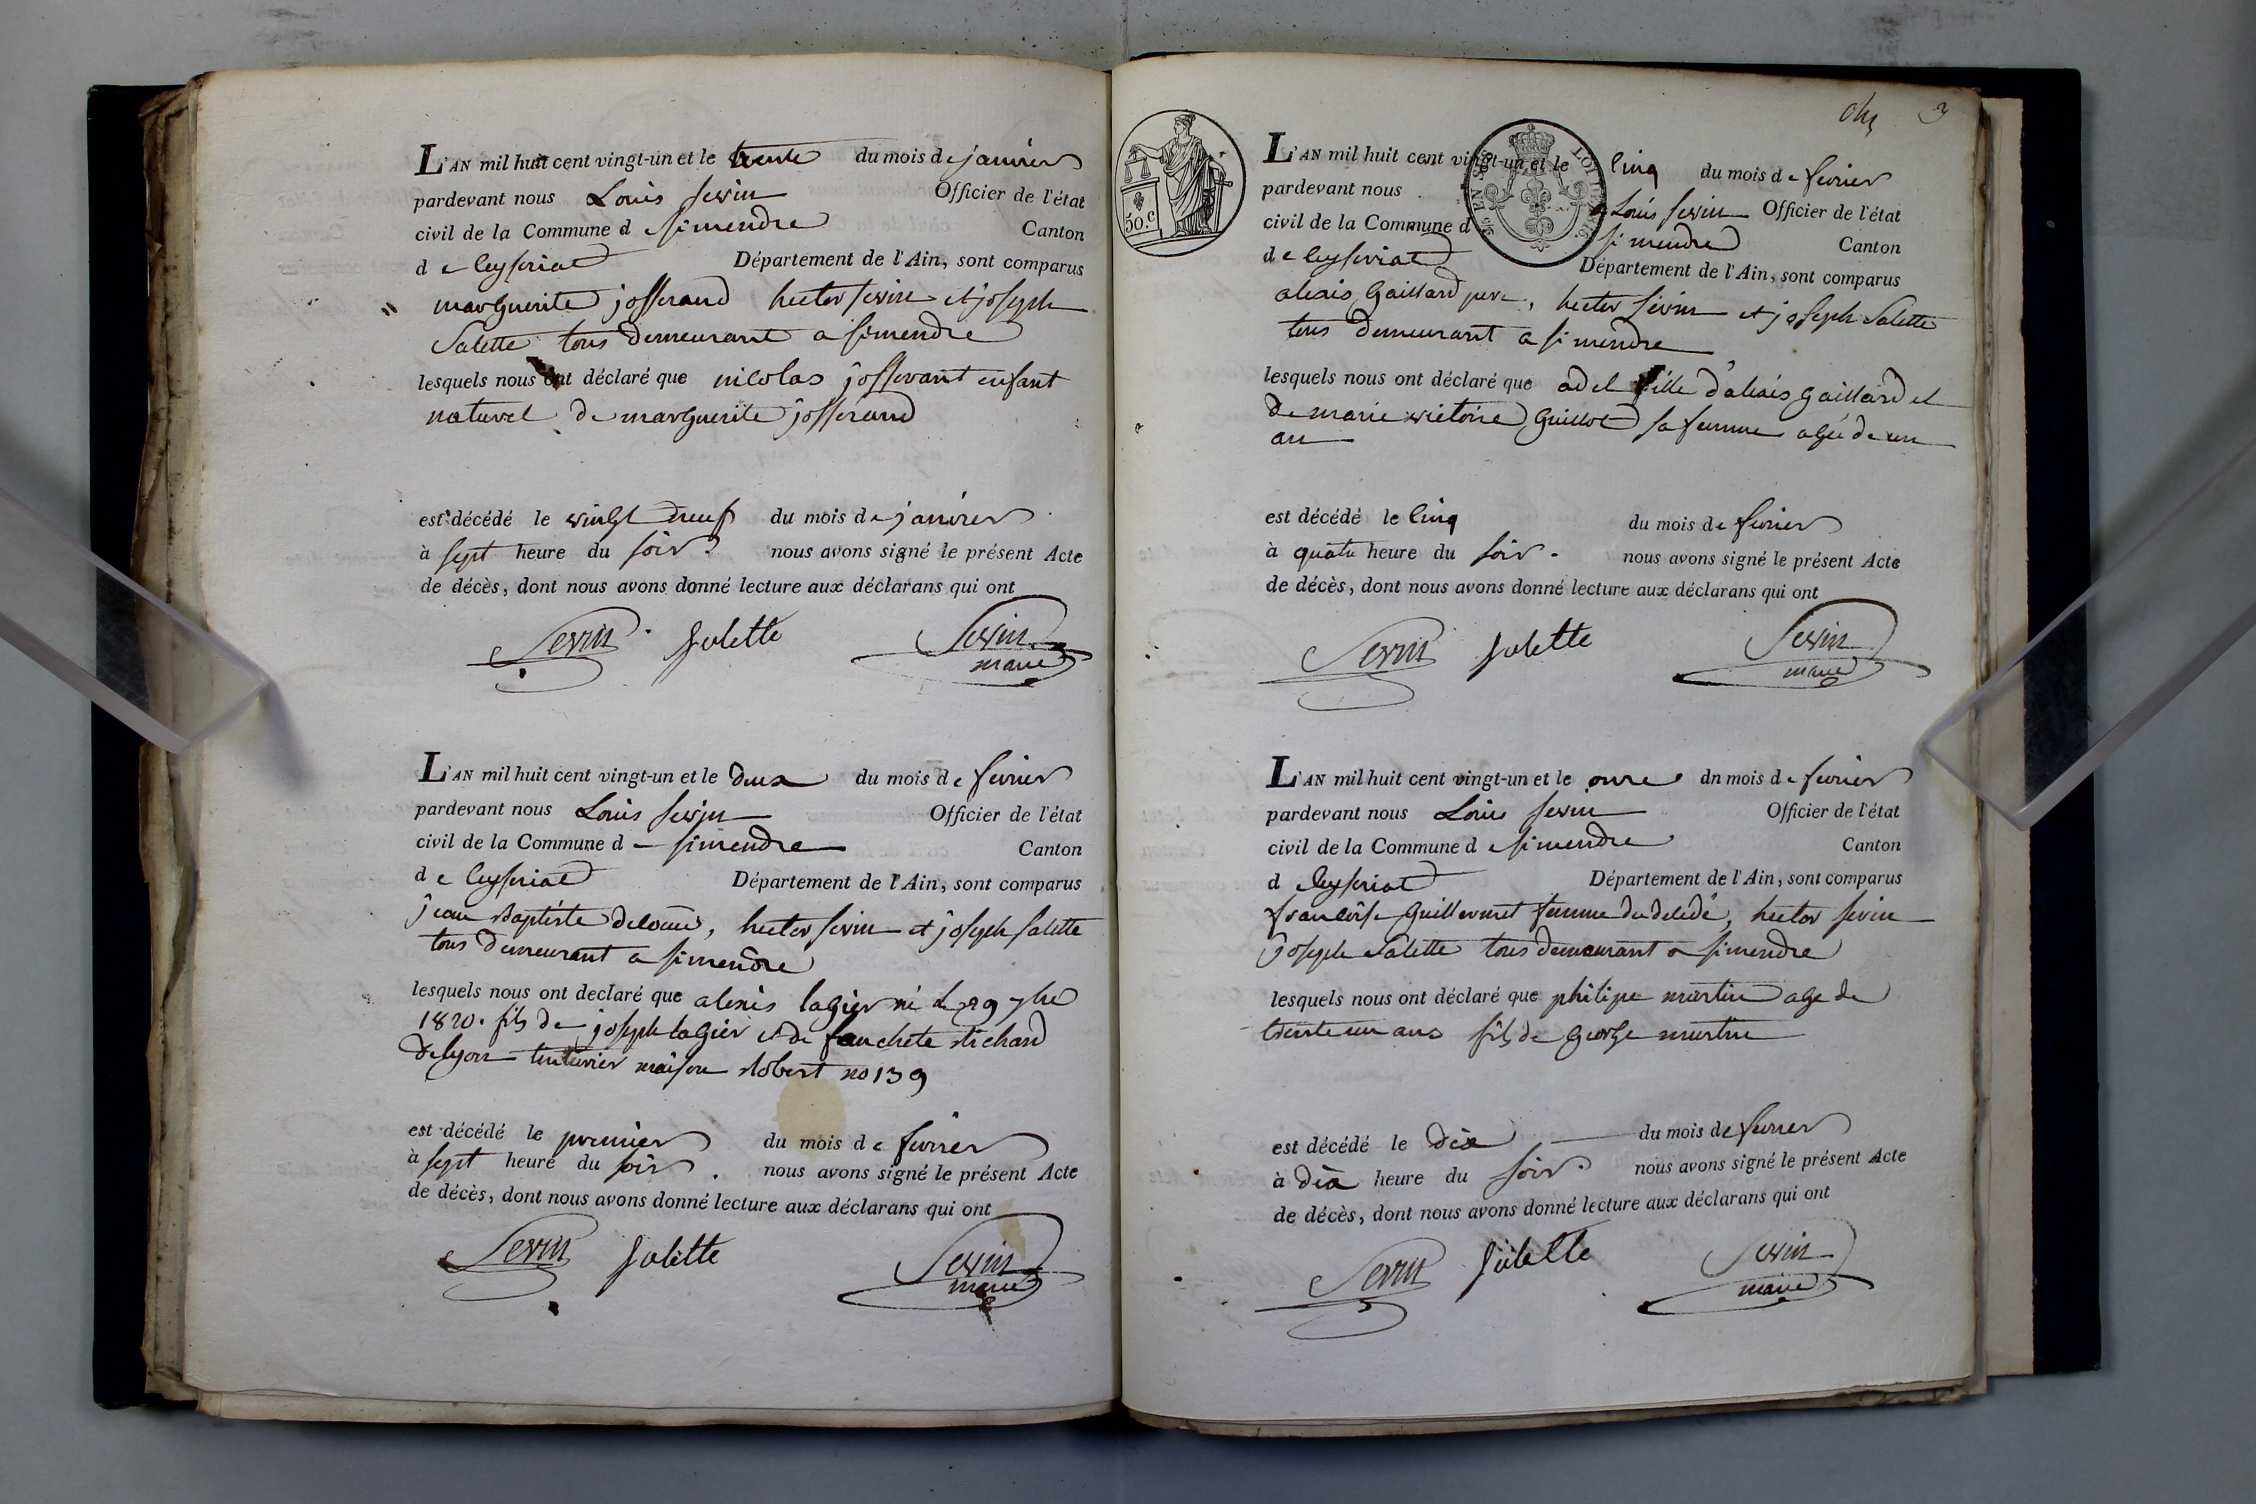 L'AN mil huit cent vingt-un et le trente du mois de janvier
pardevant nous Louis Sevin Officier de l'état
civil de la Commune d e Simendre Canton
d e Ceyseriat Département de l'Ain, sont comparus
marguerite josserand hector sevin et joseph
Salette tous demeurant a simendre
lesquels nous ont déclaré que nicolas josserant enfant
naturel de marguerite josserand
est décédé le vingt neuf du mois de janvier
à sept heure du soir. nous avons signé le présent Acte
de décès, dont nous avons donné lecture aux déclarans qui ont
Sevin Salette Sevin
maire
L'AN mil huit cent vingt-un et le deux du mois de fevrier
pardevant nous Louis Sevin Officier de l'état
civil de la Commune d e simendre Canton
d e Ceyseriat Département de l'Ain, sont comparus
jean Baptiste, hector sevin et joseph salette
tous demeurant a simendre
lesquels nous ont declaré que alexis lagier né le 29 7bre
1820. fils de joseph lagier et de fanchete Richard
de lyon tinturier maison Robert no 139
est décédé le premier du mois de fevrier
à sept heure du soir. nous avons signé le présent Acte
de décès, dont nous avons donné lecture aux déclarans qui ont
Sevin Salette Sevin
maire
3
50.c
L'AN mil huit cent vingt-un et le cinq du mois de fevrier
pardevant nous Louis Sevin Officier de l'état
civil de la Commune d e simendre Canton
d e Ceyseriat Département de l'Ain, sont comparus
alexis Gaillard pere, hector sevin et joseph Salette
tous demeurant a simendre
lesquels nous ont déclaré que adel fille d'alexis Gaillard et
de marie victoire Guillot sa femme agée de un
an
est décédé le cinq du mois de fevrier
à quatre heure du soir. nous avons signé le présent Acte
de décès, dont nous avons donné lecture aux déclarans qui ont
Sevin Salette Sevin
maire
L'AN mil huit cent vingt-un et le onze dn mois de fevrier
pardevant nous Louis Sevin Officier de l'état
civil de la Commune d e simendre Canton
d e Ceyseriat Département de l'Ain, sont comparus
francoise Guillermet femme du dcedé, hector sevin
joseph Salette tous demeurant a simendre
lesquels nous ont déclaré que philipe martin age de
trente un ans fils de george martin
est décédé le dix du mois de fevrier
à dix heure du soir. nous avons signé le présent Acte
de décès, dont nous avons donné lecture aux déclarans qui ont
Sevin Salette Sevin
maire